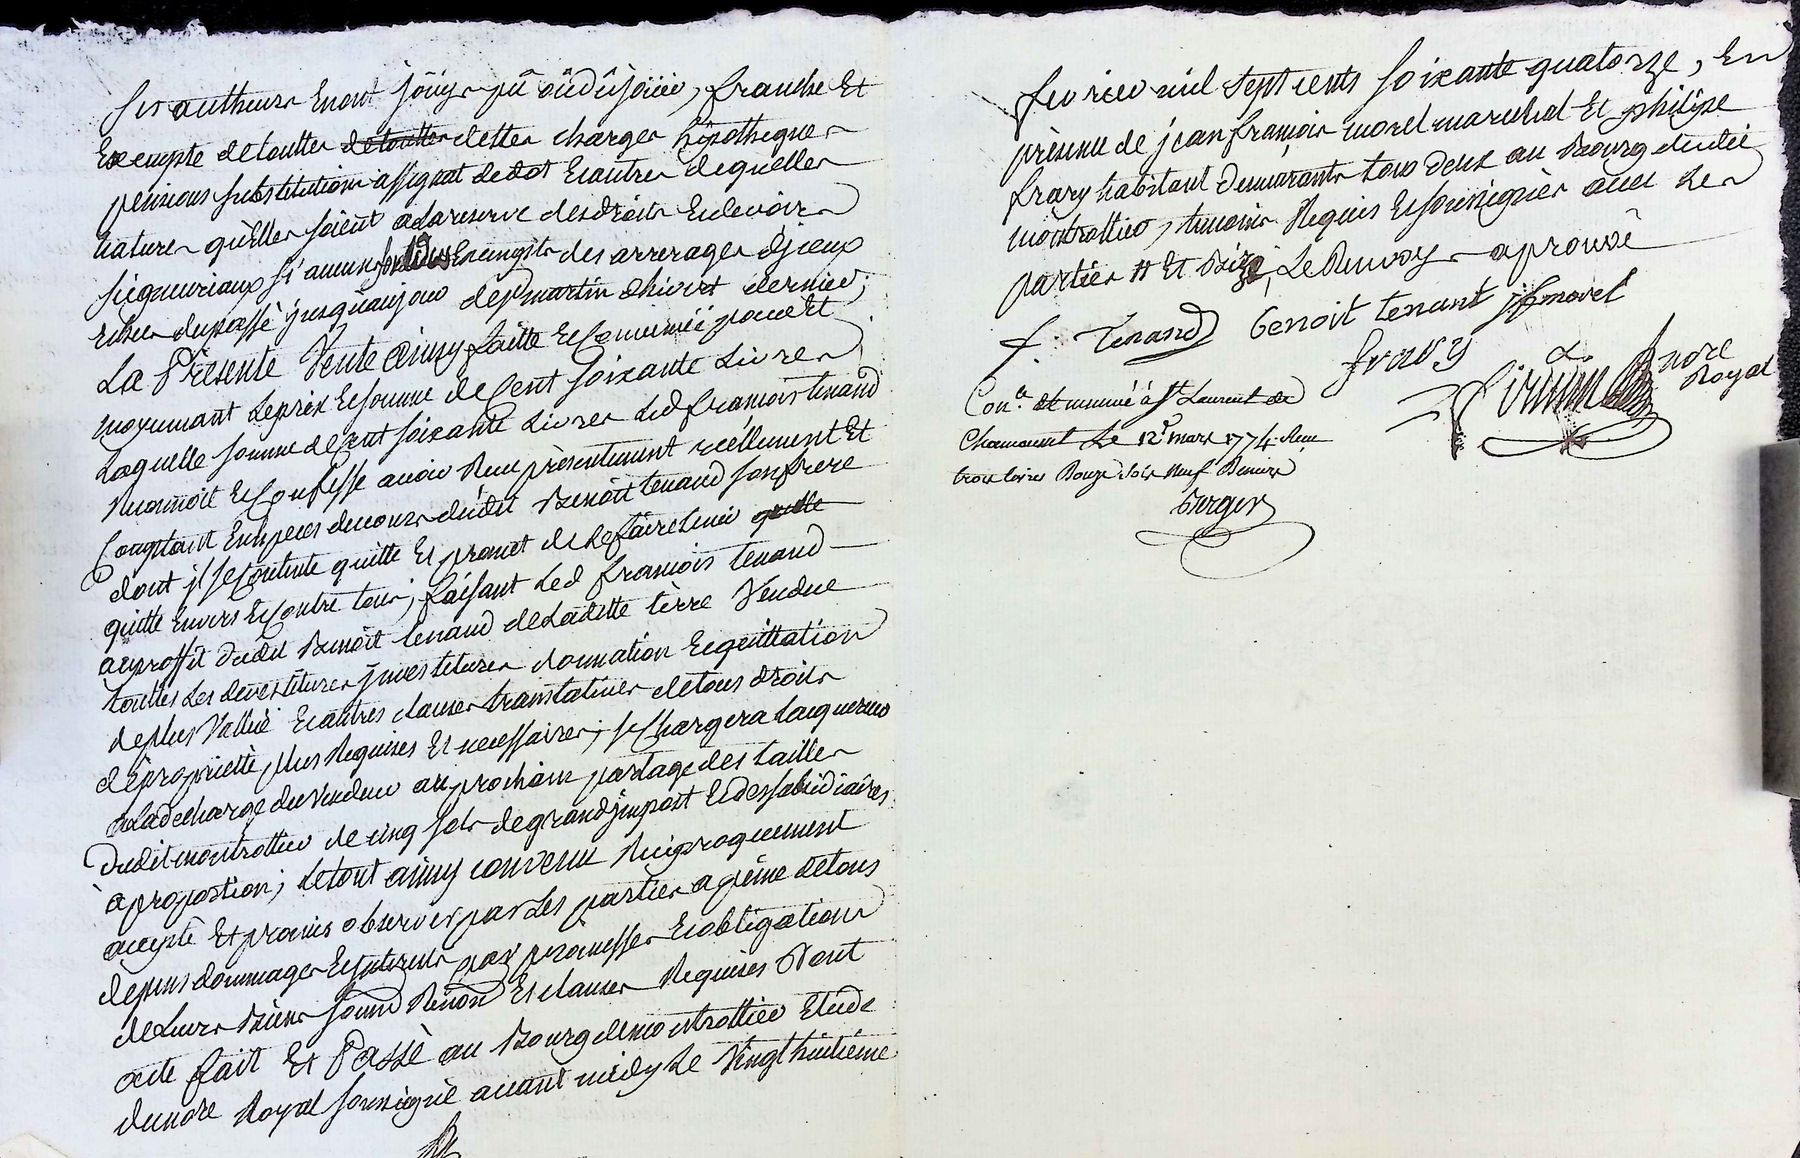 ses autheurs En ont joüy pû oû dû joüir, franche Et
Exempte de toutter de toutter detter charger hipotheguer
pensions substitution assignat de dot Et autrer dequeller
nature qu'Eller soient a la reserve des droits Et devoirs
seigneuriaux si aucuns sont dus Exempte des arrerages d'jceux
Et du passé jusqu'aujour de st martin d'hivert dernier,
La Présente Vente ainsy faitte Et Consentie pour Et
moyennant Le prix Et somme de Cent soixante Livres
Laquelle somme de Cent soixante Livres Led francois tenand
Reconnoit Et Confesse avoir Receu presentement réellement Et
Comptant En Especes de cours dudit Benoit tenand son frere
dont jl se Contente quitte Et promet de Le faire tenir quitte
quitte Envers Et Contre tous; faisant Led francois tenand
au proffit dudit Benoit tenand de Laditte tèrre Vendue
touttes Les devestitures jnvestitures donnation Et quittation
de plus Vallüe Et autres clauses translatives de tous droits
de proprietté plus Requises Et necessaires; se Chargera Lacquereur
a La decharge du Vendeur au prochain partage des tailles
dudit montrottier de cinq sols de grand jmpost Et des subsidiaires
à proportion; Le tout ainsy convenu Reciproquement
accepté Et promis observer par Les parties a peine de tous
depens dommages Et jnterests par promesses Et obligations
de Leurs Biens soumd Renond Et clauses Requises Dont
acte fait Et Passé au Bourg de montrottier Etude
du nore Royal soussigné avant midy Le Vingt huitième
fevrier mil sept cents soixante quatorze, En
présence de jean francois morel marechal Et philipe
frary habitant demeurants tous deux au Bourg dudit
montrottier, temoins Requis Et soussignés avec Les
parties Et Le Renvoy aprouvé
f. Tenand Benoit tenant jf morel
frary
nore
Royal
Con.lé à St Laurent de
Chamousset Le 12 mars 1774 Receu
trois Livres Douze sols neuf Deniers
Berger